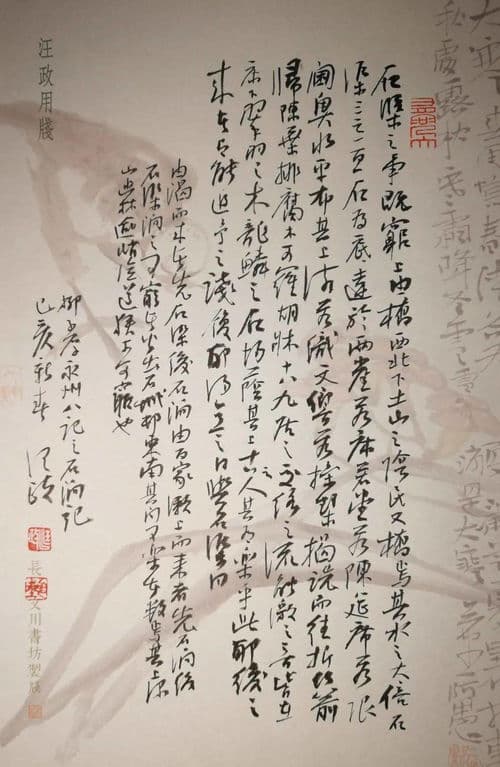 石渠之事既窮上由橋西北下土山之陰民又橋焉其水之大倍石
渠三之一亘石為底達於兩崖若床若堂若陳筵席若限
閫奧水平布其上流若織文響若操琴揭跣而往折竹箭
掃陳葉排腐木可羅胡床十八九居之交絡之流觸激之音皆在
床下翠羽之木龍鱗之石均蔭其上古人其有樂乎此耶後之
來者有能追予之踐履耶得意之日與石渠同
由渴而來者先石渠後石澗由百家瀨上而來者先石澗後
石渠澗之可窮者皆出石城村東南其間可樂者數焉其上深
山幽林逾峭險道狹不可窮也
柳子厚永州八記之石澗記
己亥新春 汪政
汪政用牋
文川書坊製牋